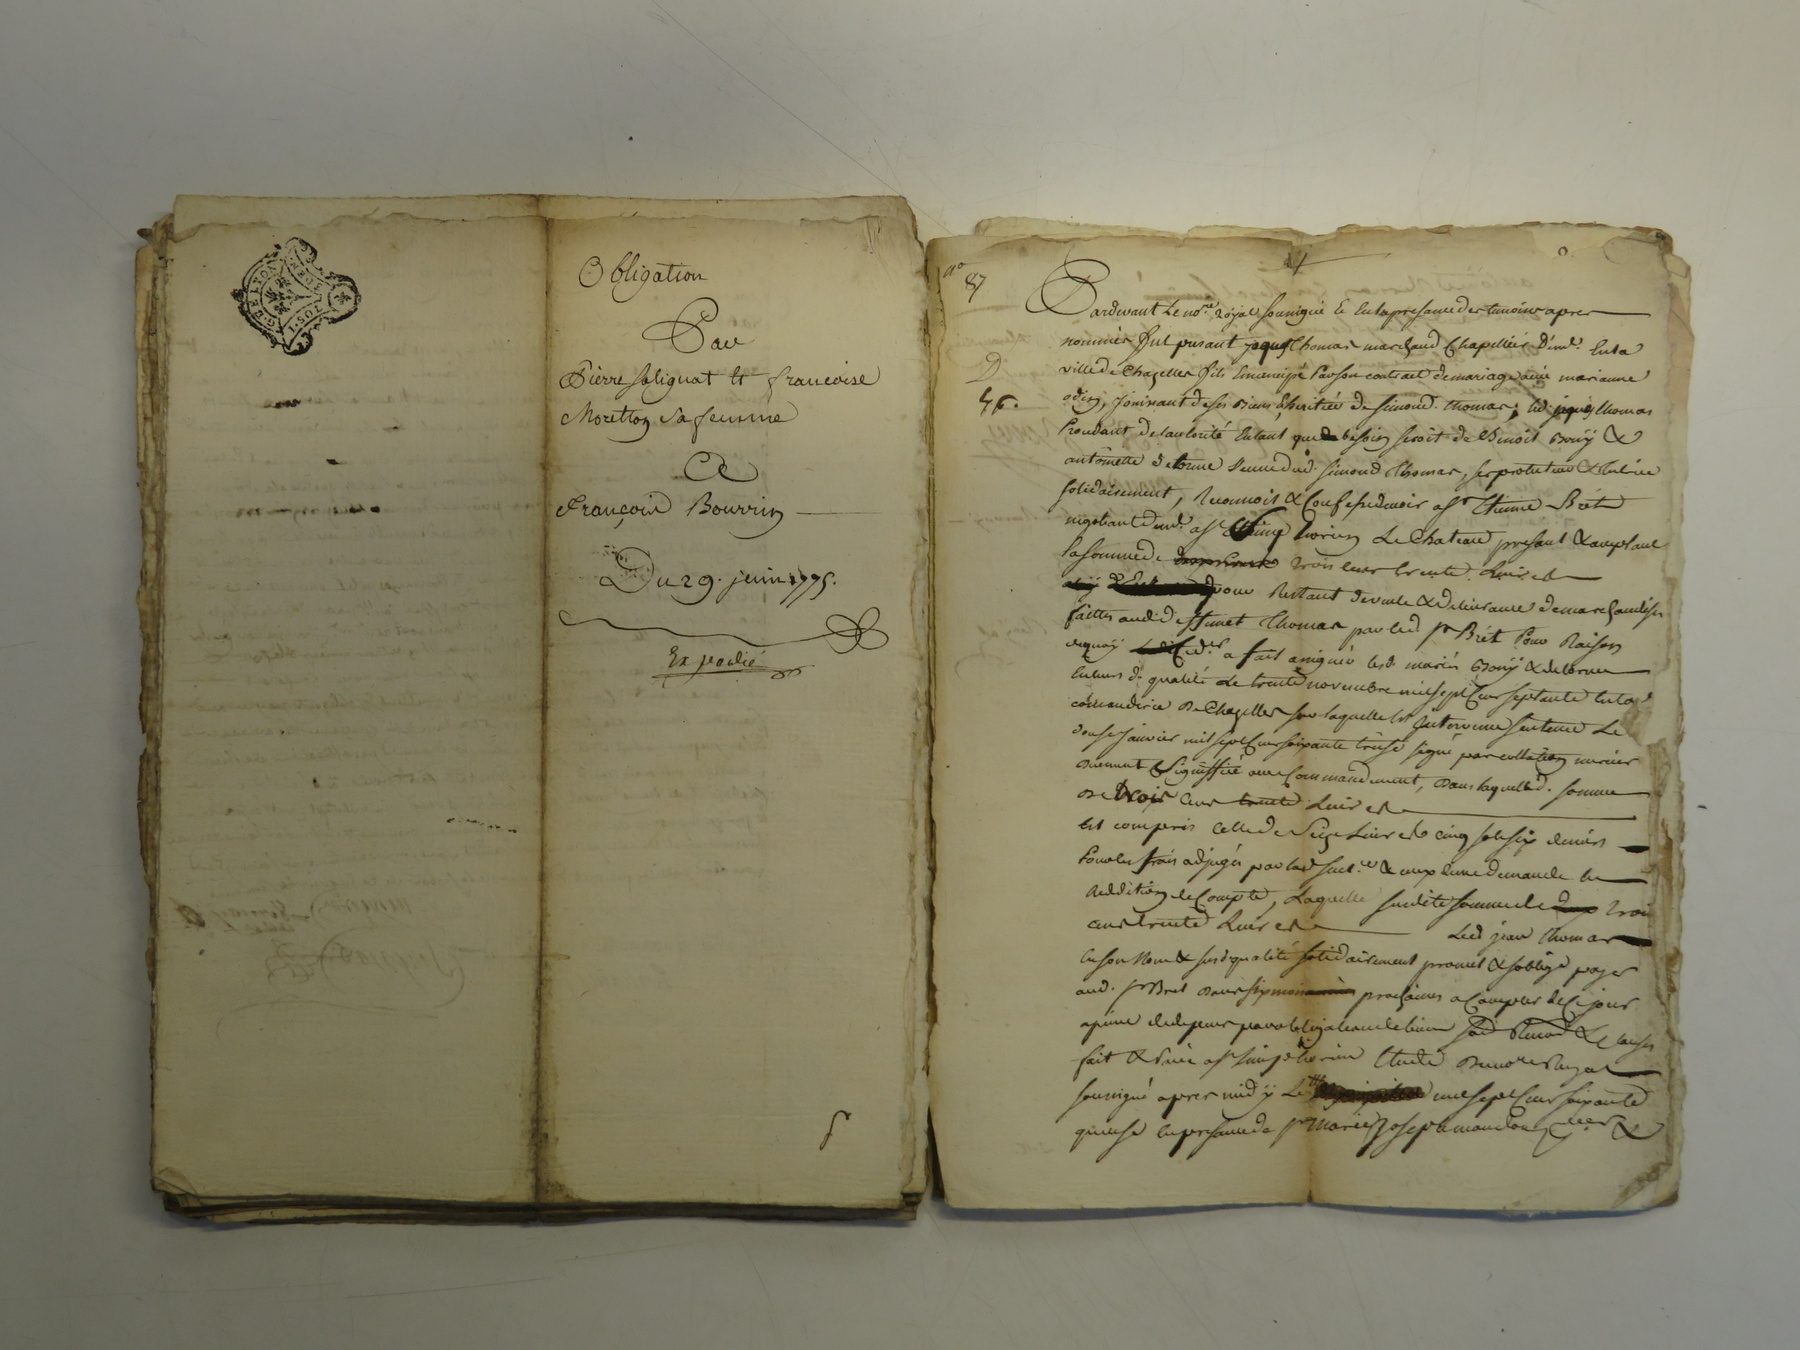 G. DE LYON
1. SOL
Obligation
Par
Pierre Solignat et francoise
Moretton Sa femme
A
François Bourrin
Du 29. juin 1775.
Expedié
n°
87
Pardevant Le no.re Royal soussigné et En la presance des temoins apres
nommés fut present jaques Thomas marchand Chapellier D'em.t En la
ville de Chazelles fils Emancipé par son contract de mariage avec marianne
jouissant de ses Biens & heritier de Simond Thomas, led jaques Thomas
Procedant de l'autorité Entant que de besoin seroit de Benoit Bouÿ &
antoinette delorme veuve dud. Simond Thomas, ses protuteur & tutrice
solidairement, Reconnoit & Confesse devoir a s.r Etienne Brét
negotiant dem.t a s.t Simphorien Le Chateau present & acceptant
la somme de trois cens trente Livres
pour Restant de vente & delivrance de marchandises
faittes aud deffunct Thomas par led s.r Brét Pour Raison
dequoy a fait assigner les d. mariés Bouÿ & delorme
de qualité le trente novembre mil sept cens septante En la
commanderie de Chazelles sur laquelle est intervenue sentence Le
douse janvier mil sept cens soixante trese signé par collation
duement Signiffiée avec Commandement, dans laquelle d. somme
de trois cens trente Livres
est compris celle de Seize Livres cinq sols six deniers
Pour les frais adjugés par lad sent.ce &
Reddition de Compte, Laquelle susditte somme de trois
cens trente Livres Led jean Thomas
En son Nom & susd qualité solidairement promet & s'oblige payer
aud. s.r Bret dans six mois prochaines a Compter de Ce jour
a peine de depens par obligation de biens
fait & Passé a s.t Simphorien Etude du no.re Royal
soussigné apres midÿ Le mil sept cens soixante
quinse En presance de s.r